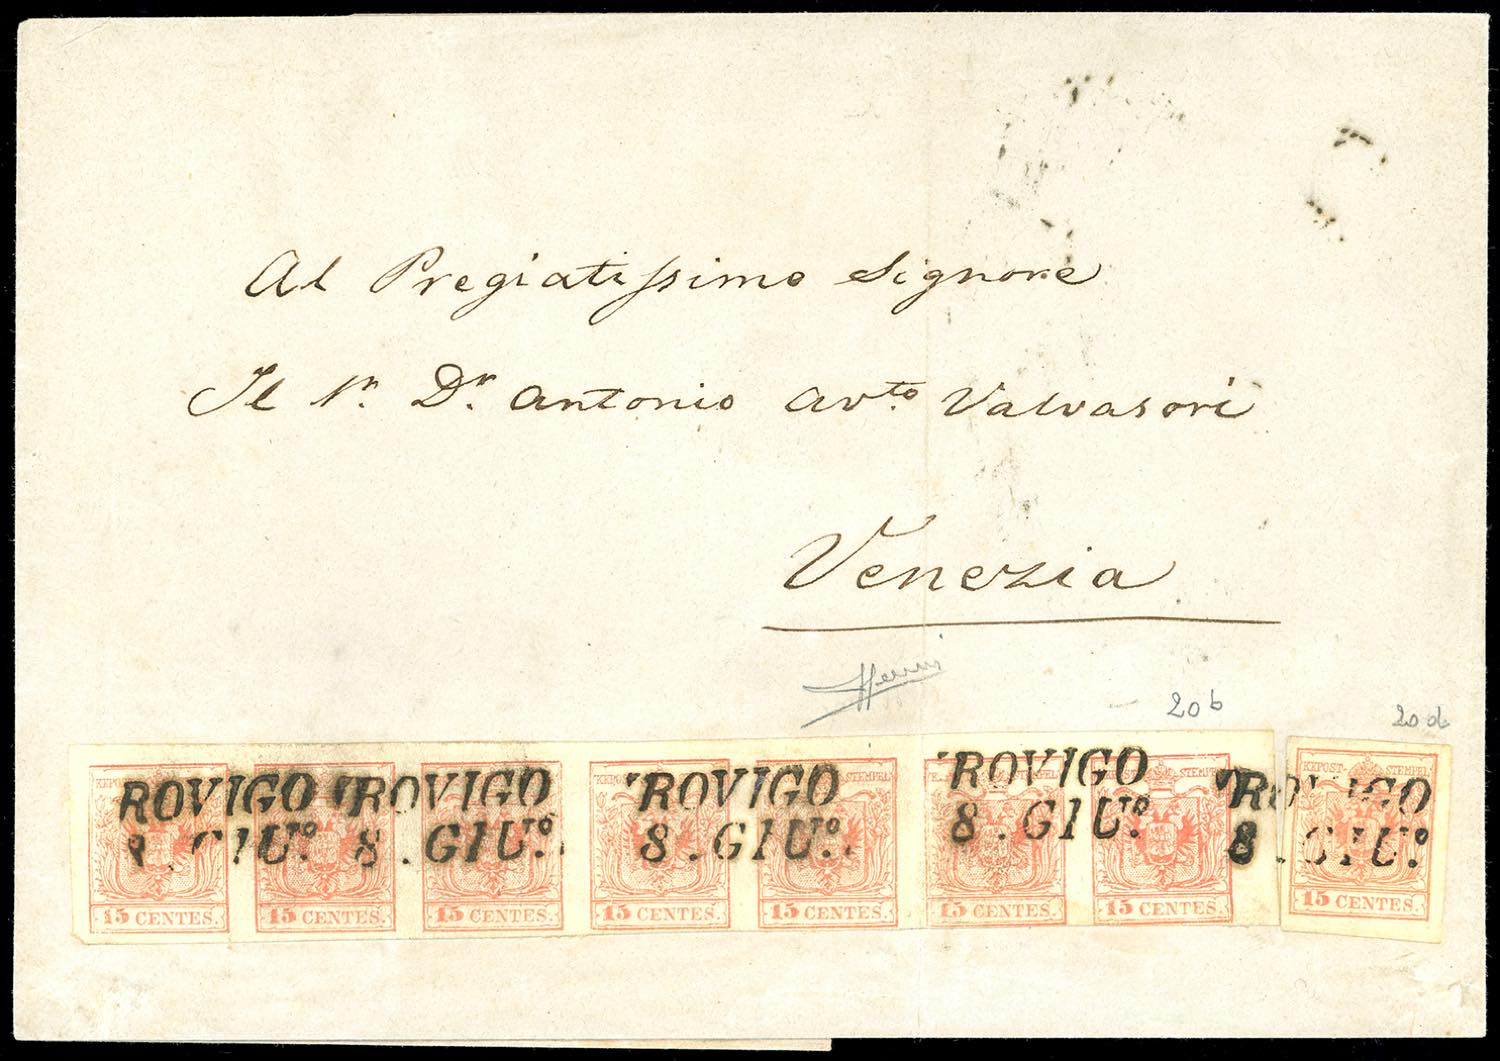 Al Pregiatissimo Signore
Il Sr. Dr. Antonio Avto. Valvasori
Venezia
20 b
20 d
ROVIGO ROVIGO ROVIGO ROVIGO ROVIGO
8. GIUº. 8. GIUº. 8. GIUº. 8. GIUº. 8. GIUº.
KKPOST- STEMPEL KKPOST- STEMPEL
15 CENTES. 15 CENTES. 15 CENTES. 15 CENTES. 15 CENTES. 15 CENTES. 15 CENTES. 15 CENTES.